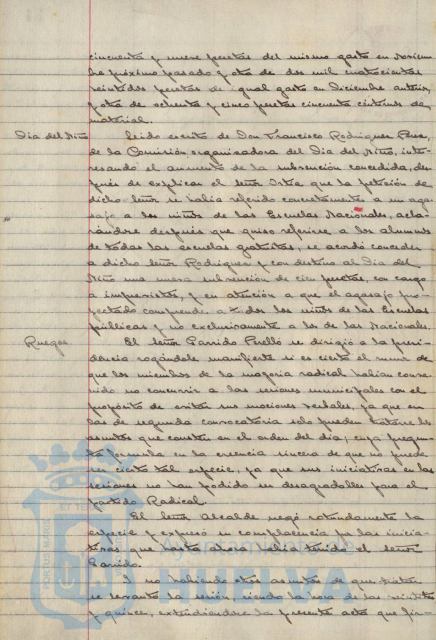 cincuenta y nueve pesetas del mismo gasto en Noviem-
bre próximo pasado y otra de dos mil cuatrocientas
veintidos pesetas de igual gasto en Diciembre anterior,
y otra de ochenta y cinco pesetas cincuenta céntimos de
material.
Dia del Niño Leido escrito de Don Francisco Rodriguez Perez,
de la Comisión organizadora del Dia del Niño, inte-
resando el aumento de la subvención concedida, des-
pués de explicar el señor que la petición de
dicho señor se habia referido concretamente a un aga-
sajo a los niños de las Escuelas Nacionales, acla-
rándose después que quiso referirse a los alumnos
de todas las escuelas gratuitas, se acordó conceder
a dicho señor Rodriguez y con destino al Dia del
Niño una nueva subvención de cien pesetas, con cargo
a imprevistos, y en atención a que el agasajo pro-
yectado comprende a todos los niños de las Escuelas
públicas y no exclusivamente a los de las Nacionales.
Ruegos El Señor Garrido Perelló se dirigió a la presi-
dencia rogándole manifieste si es cierto el rumor de
que los miembros de la mayoria radical habian conve-
nido no concurrir a las sesiones municipales con el
propósito de evitar sus mociones verbales, ya que en
las de segunda convocatoria solo pueden tratarse los
asuntos que consten en el orden del dia; cuya pregun-
ta formula en la creencia sincera de que no puede
ser cierto tal especie, ya que sus iniciativas en las
sesiones no han podido ser desagradables para el
partido Radical.
El Señor Alcalde negó rotundamente la
especie y expresó su complacencia por las inicia-
tivas que hasta ahora habia tenido el señor
Garrido.
Y no habiendo otros asuntos de que tratar
se levantó la sesión, siendo la hora de las veintitres
y quince, extendiéndose la presente acta que fir-
Ayuntamiento de
HUELVA